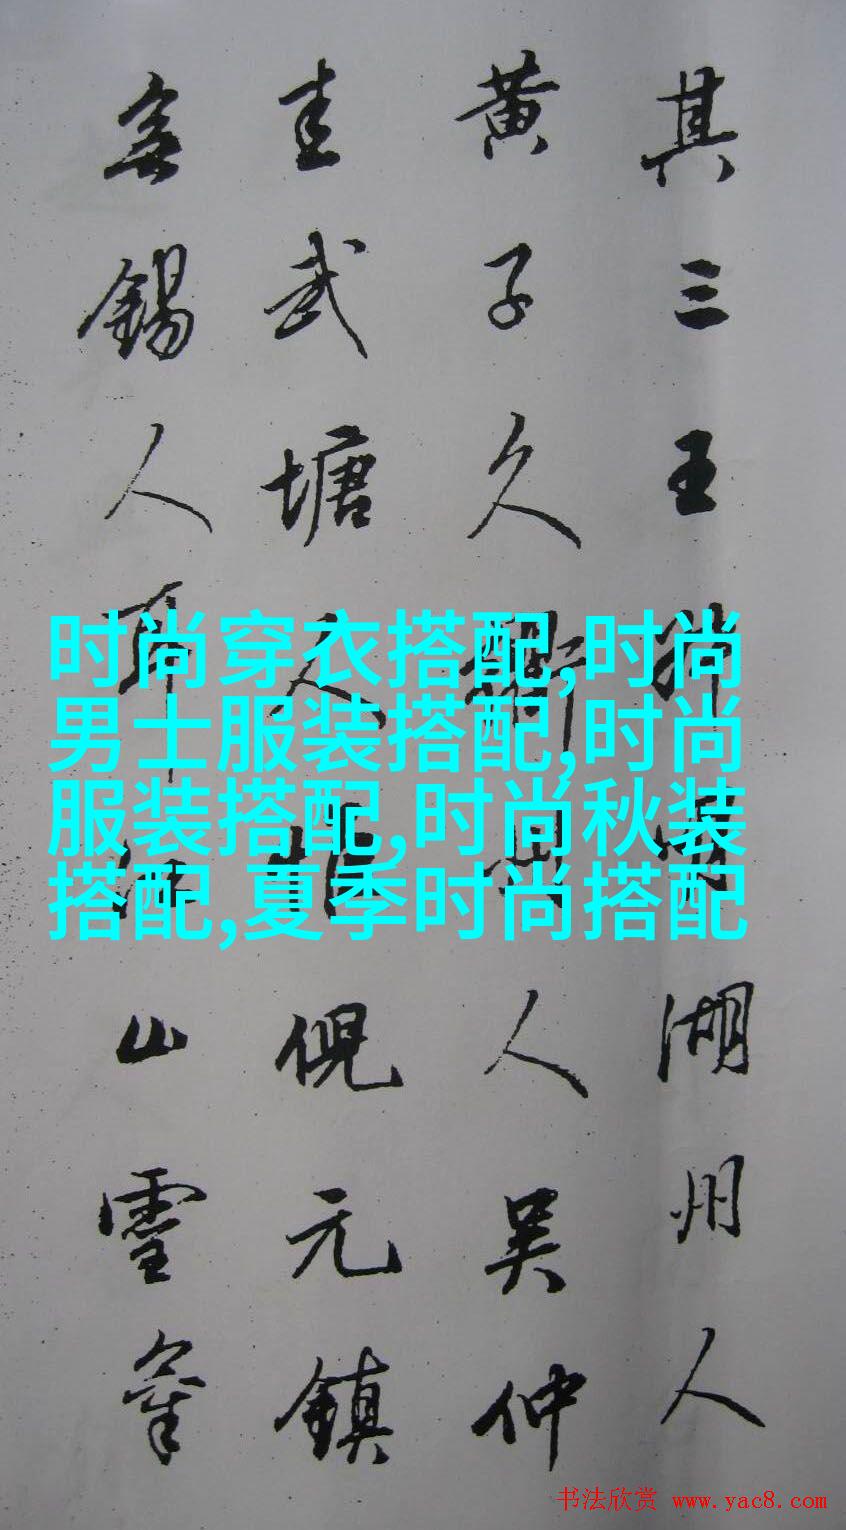 其三王叔明湖州人
黄子久衢人吴仲
圭武塘人惟倪元鎮
無錫人耳江山靈氣
时尚穿衣搭配,时尚
男士服装搭配,时尚
服装搭配,时尚秋装
搭配,夏季时尚搭配
书法欣赏 www.yac8.com